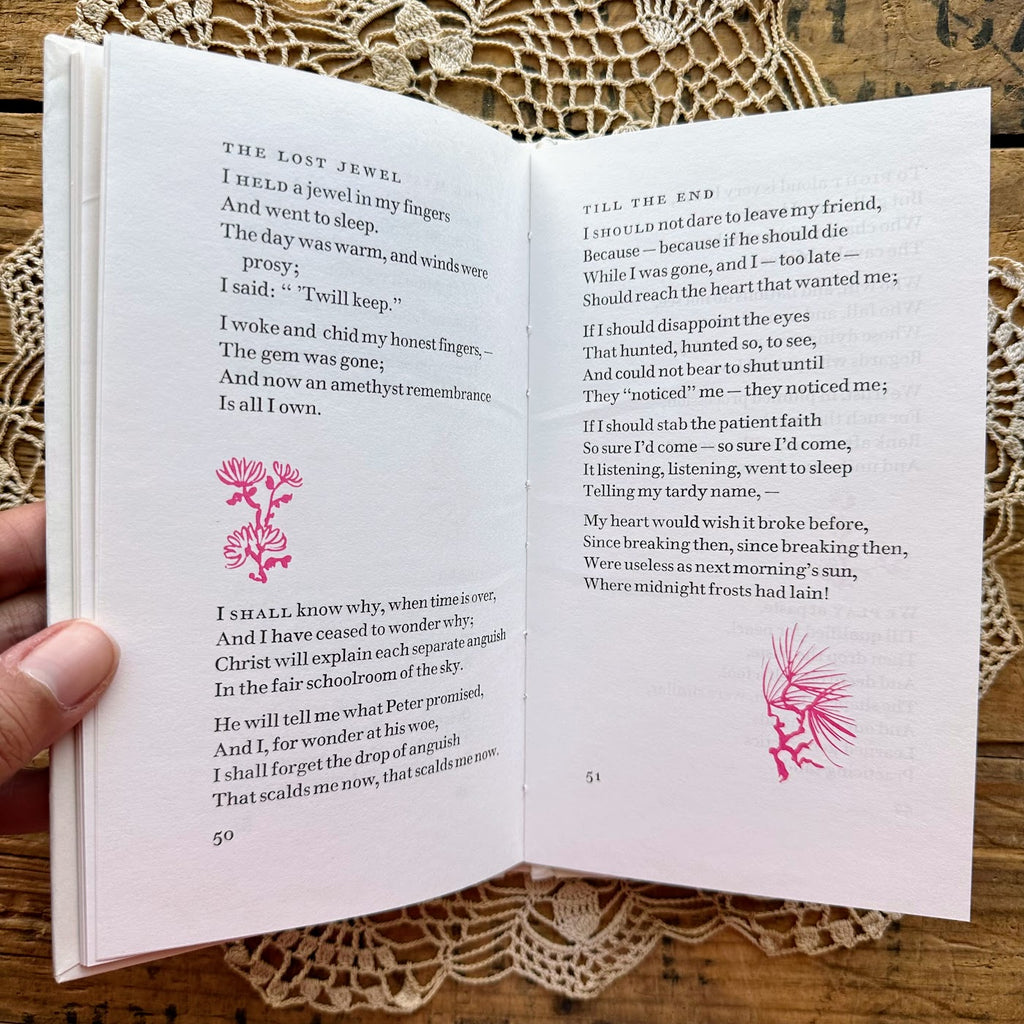 THE LOST JEWEL
I HELD a jewel in my fingers
And went to sleep.
The day was warm, and winds were
prosy;
I said: “ ’Twill keep.”
I woke and chid my honest fingers, –
The gem was gone;
And now an amethyst remembrance
Is all I own.
I SHALL know why, when time is over,
And I have ceased to wonder why;
Christ will explain each separate anguish
In the fair schoolroom of the sky.
He will tell me what Peter promised,
And I, for wonder at his woe,
I shall forget the drop of anguish
That scalds me now, that scalds me now.
50
TILL THE END
I SHOULD not dare to leave my friend,
Because — because if he should die
While I was gone, and I — too late —
Should reach the heart that wanted me;
If I should disappoint the eyes
That hunted, hunted so, to see,
And could not bear to shut until
They “noticed” me — they noticed me;
If I should stab the patient faith
So sure I’d come — so sure I’d come,
It listening, listening, went to sleep
Telling my tardy name, —
My heart would wish it broke before,
Since breaking then, since breaking then,
Were useless as next morning’s sun,
Where midnight frosts had lain!
51